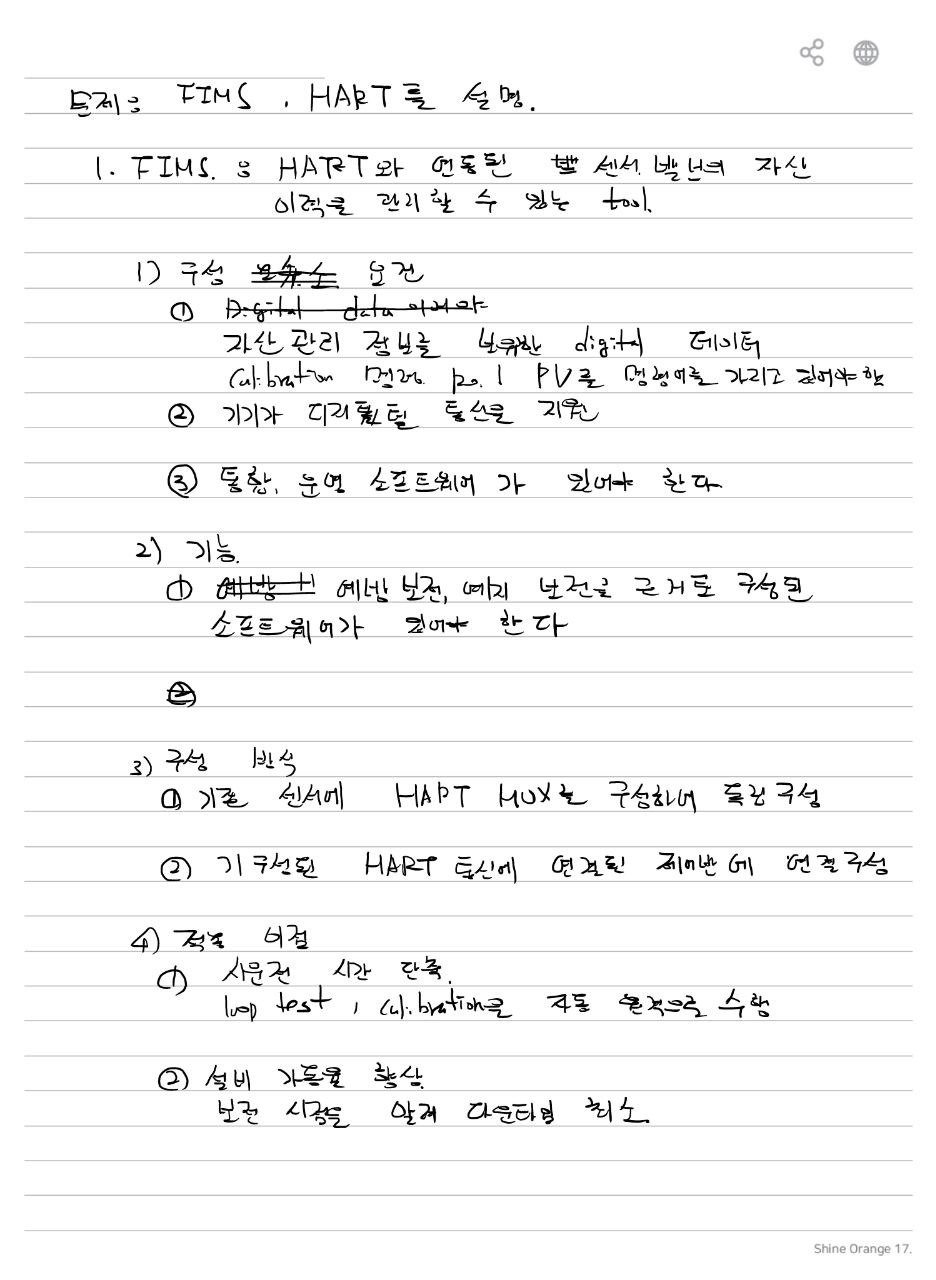 문제: FIMS, HART를 설명.
1. FIMS. : HART와 연동된 센서 밸브의 자산
이력을 관리할 수 있는 tool.
1) 구성 요건
①
자산 관리 정보를 보유한 digital 데이터
Calibration 명령. no. 1 PV를 명령어를 가지고 있어야 함
② 기기가 디지털 통신을 지원
③ 통합, 운영 소프트웨어 가 있어야 한다.
2) 기능.
① 예방 보전, 예지 보전을 근거로 구성된
소프트웨어가 있어야 한다
3) 구성 방식
① 기존 센서에 HART MUX를 구성하여 독립 구성
② 기 구성된 HART 통신에 연결된 제어반 에 연결 구성
4) 적용 이점
① 시운전 시간 단축.
loop test, calibration을 자동 원격으로 수행
② 설비 가동율 향상.
보전 시점을 알게 다운타임 최소.
Shine Orange 17.